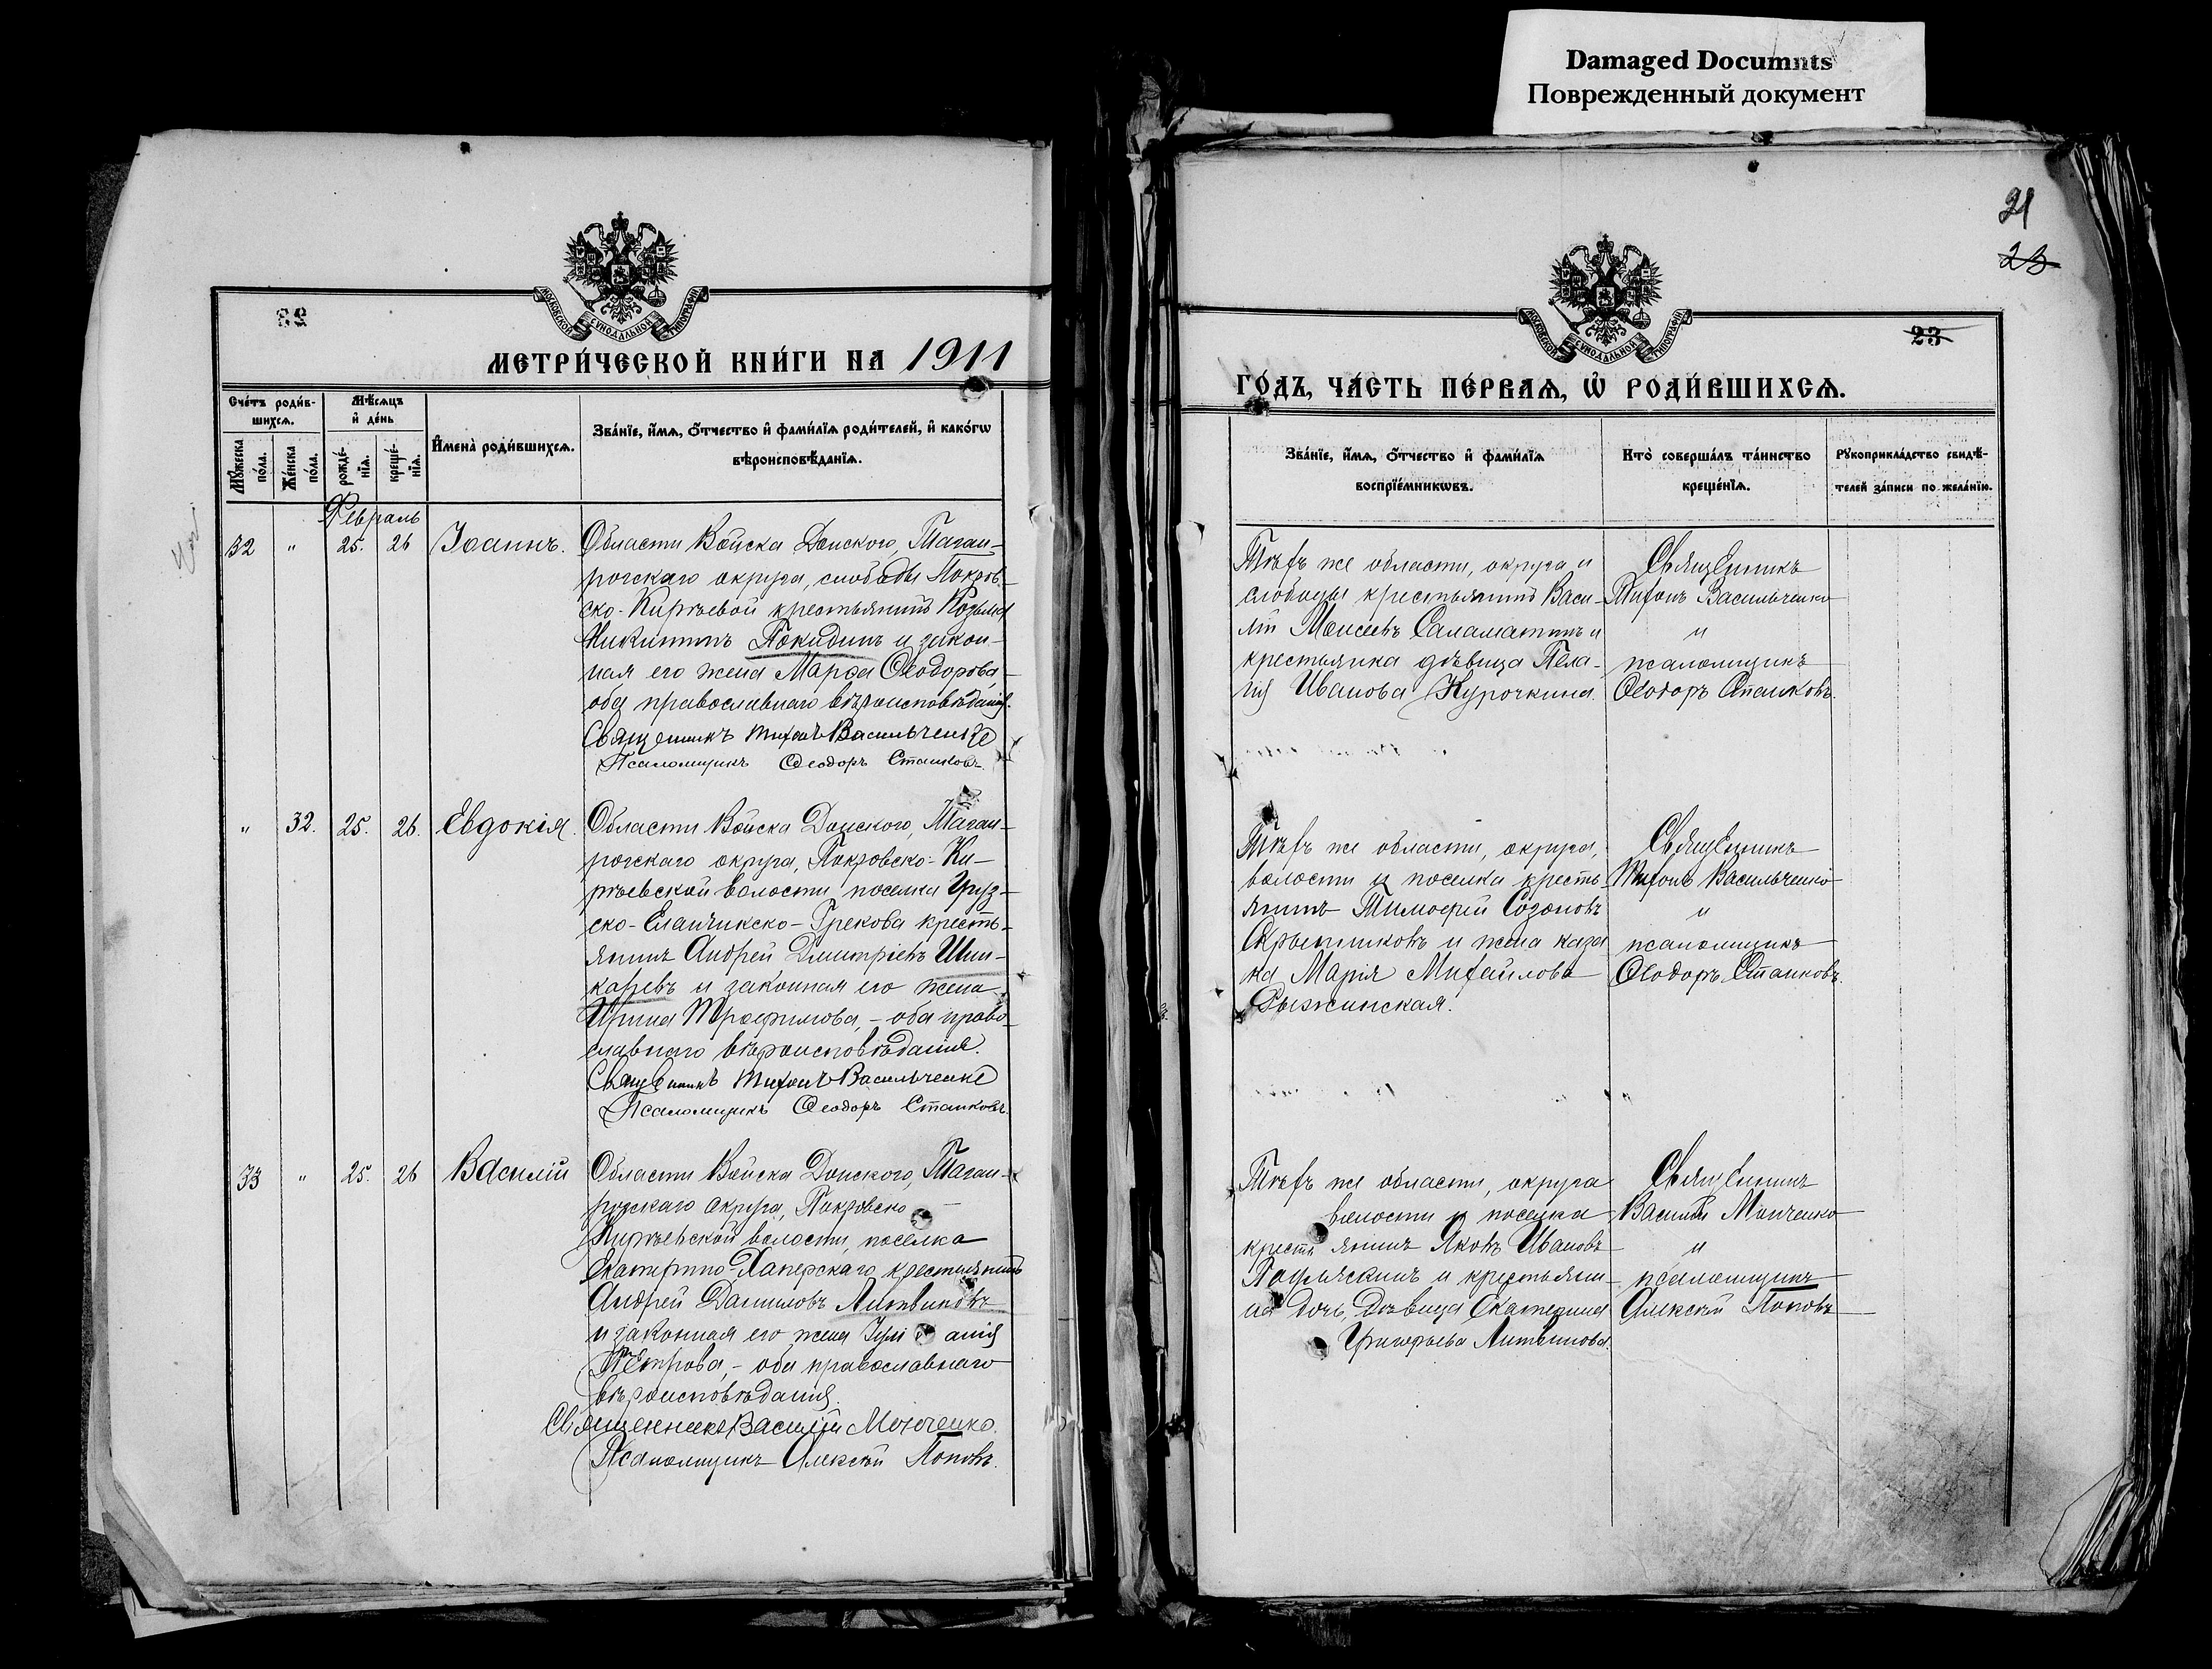 Damaged Documnts
Поврежденный документ
МОСКОВСКОЙ СѴНОДАЛЬНОЙ ТИПОГРАФІИ
МЕТРИ́ЧЕСКОЙ КНИ́ГИ НА 1911
Сче́тъ роди́в-
шихсѧ.
Мꙋ́жеска
по́ла.
Же́нска
по́ла.
Мѣ́сѧцъ
и҆ де́нь
рожде́-
нїѧ.
креще́-
нїѧ.
И҆мена̀ роди́вшихсѧ.
Зва́нїе, и҆́мѧ, ѻ҆́тчество и҆ фами́лїѧ роди́телей, и҆ како́гѡ
вѣроисповѣ́данїѧ.
Февраль
32 " 25. 26 Іоаннъ.
Области Войска Донского, Таган-
рогскаго округа, слободы Покров-
ско-Киреевой крестьянинъ Козьма
Никитинъ Покидинъ и закон-
ная его жена Марѳа Ѳеодорова
оба православнаго вѣроисповѣданія.
Священникъ Тихонъ Васильченко
Псаломщикъ Ѳеодоръ Станковъ.
" 32. 25. 26. Евдокія.
Области Войска Донского, Таган-
рогскаго округа, Покровско-Ки-
рѣевской волости, поселка Груз-
ско-Еланчикско-Грекова кресть-
янинъ Андрей Димитріевъ Шин-
каревъ и законная его жена
Ирина Трофимова, - оба право-
славнаго вѣроисповѣданія.
Священникъ Тихонъ Васильченко
Псаломщикъ Ѳеодоръ Станковъ.
33 " 25. 26 Василій
Области Войска Донского, Таган-
рогскаго округа, Покровско -
Кирѣевской волости, поселка
Екатерино-Хаперскаго крестьянинъ
Андрей Даниловъ Литвиновъ
и законная его жена Іулі анія
Петрова, - оба православнаго
вѣроисповѣданія.
Священникъ Василій Мончеnко.
Псаломщикъ Алексѣй Поповъ.
21
23
23
МОСКОВСКОЙ СѴНОДАЛЬНОЙ ТИПОГРАФІИ
ГО́ДЪ, ЧА́СТЬ ПЕ́РВАѦ, Ѡ҆ РОДИ́ВШИХСѦ.
Зва́нїе, и҆́мѧ, ѻ҆́тчество и҆ фами́лїѧ
воспрїе́мникѡвъ.
Кто̀ соверша́лъ та́инство
креще́нїѧ.
Рꙋкоприкла́дство свидѣ́-
телей за́писи по жела́нїю.
Тѣхъ же области, округа и
слободы крестьянинъ Васи-
лій Моисеевъ Саламатинъ и
крестьянка дѣвица Пела-
гія Иванова Курочкина.
Священникъ
Тихонъ Васильченко
и
псаломщикъ
Ѳеодоръ Станковъ.
Тѣхъ же области, округа,
волости и поселка кресть-
янинъ Тимоѳей Созоновъ
Скрынниковъ и жена каза
ка Марія Михайлова
Рыжинская.
Священникъ
Тихонъ Васильченко
и
псаломщикъ
Ѳеодоръ Станковъ.
Тѣхъ же области, округа
волости и поселка
кресть янинъ Яковъ Ивановъ
и крестьяни-
на дочь, дѣвица Екатерина
Григорьева Литвинова.
Священникъ
Василій Мончеnко
и
псаломщикъ
Алексѣй Поповъ